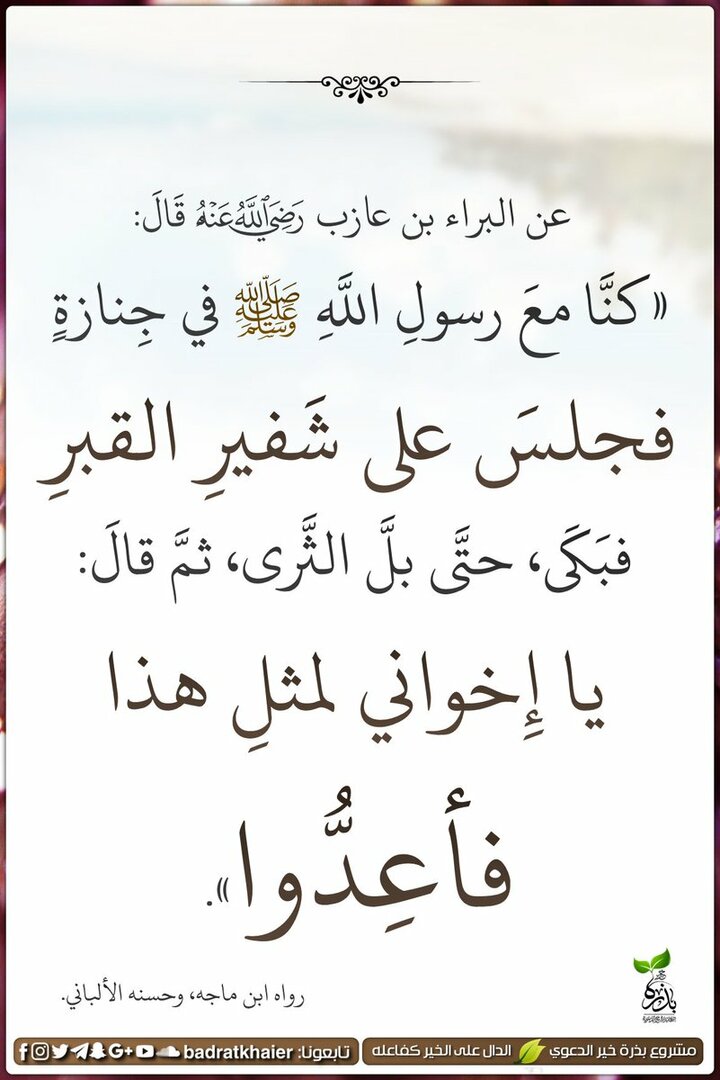 عن البراء بن عازب رَضِيَ اللَّهُ عَنْهُ قَالَ:
«كنَّا معَ رسولِ اللَّهِ ﷺ في جِنازةٍ
فجلسَ على شَفيرِ القبرِ
فبَكَى، حتَّى بلَّ الثَّرى، ثمَّ قالَ:
يا إِخواني لمثلِ هذا
فأعِدُّوا».
رواه ابن ماجه، وحسنه الألباني.
بذرة خير
مشروع بذرة خير الدعوي الدال على الخير كفاعله تابعونا: badratkhaier